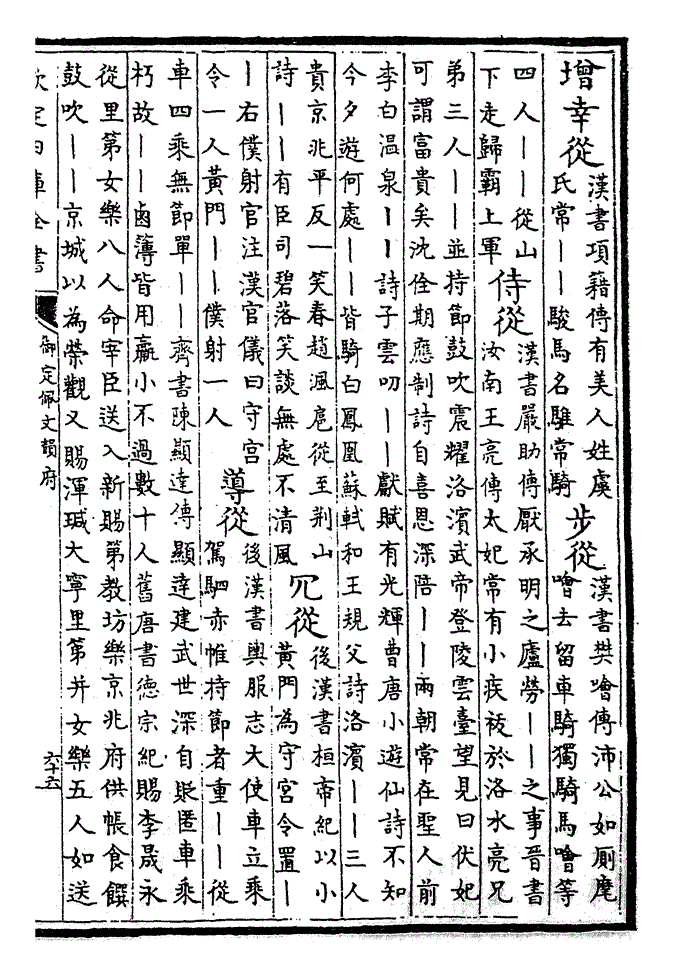 增幸從漢書項籍傳有美人姓虞
氏常丨丨駿馬名騅常騎
步從漢書樊噲傳沛公如厠麾
噲去留車騎獨騎馬噲等
四人丨丨從山
下走歸霸上軍
侍從漢書嚴助傳厭承明之廬勞丨丨之事晉書
汝南王亮傳太妃常有小疾祓於洛水亮兄
弟三人丨丨並持節鼓吹震耀洛濱武帝登陵雲臺望見曰伏妃
可謂富貴矣沈佺期應制詩自喜恩深陪丨丨兩朝常在聖人前
李白温泉丨丨詩子雲叨丨丨獻賦有光輝曹唐小遊仙詩不知
今夕遊何處丨丨皆騎白鳳凰蘇軾和王規父詩洛濱丨丨三人
貴京兆平反一笑春趙渢扈從至荆山
詩丨丨有臣司碧落笑談無處不清風
冗從後漢書桓帝紀以小
黃門為守宮令置丨
丨右僕射官注漢官儀曰守宮
令一人黃門丨丨僕射一人
導從後漢書輿服志大使車立乘
駕駟赤帷持節者重丨丨從
車四乘無節單丨丨齊書陳顯達傳顯達建武世深自貶匿車乘
朽故丨丨鹵薄皆用羸小不過數十人舊唐書德宗紀賜李晟永
從里第女樂八人命宰臣送入新賜第教坊樂京兆府供帳食饌
鼓吹丨丨京城以為榮觀又賜渾瑊大寧里第并女樂五人如送
欽定四庫全書
御定佩文韻府
六十六